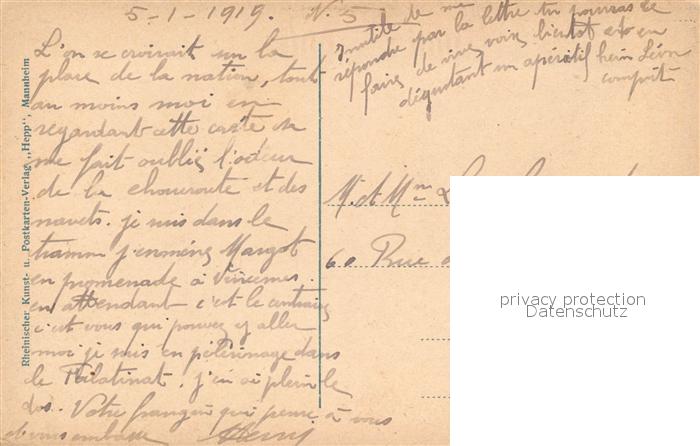 5-1-1919. N. 5
L'on se croirait sur la
place de la nation, tout
au moins moi en
regardant cette carte sa
me fait oublier l'odeur
de la choucroute et des
navets. je suis dans le
tramm j'enméne Margot
en promenade à Vincennes.
en attendant c'est le contraire
c'est vous qui pouvez y aller
moi je suis en pélerinage dans
le Palatinat. j'en ai plein le
dos. Votre frangin qui pense à vous
et vous embrasse Henri
Inutile de me
répondre par la lettre tu pourras le
faire de vive voix bientot et en
dégustant un apéritif hein Léon
compris
M. et Mme L
60 Rue
Rheinischer Kunst- u. Postkarten-Verlag „Hepp", Mannheim
privacy protection
Datenschutz